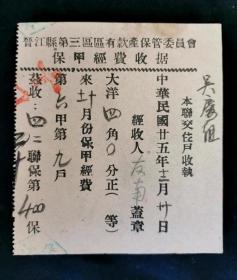 晉江縣第三區區有款產保管委員會
保甲經費收据
茲收：四二聯保第400保
第六甲第九戶
來十月份保甲經費
大洋四角0分正（等）
經收人 蓋章
中華民國廿五年十二月廿日
本聯交住戶收執
吳